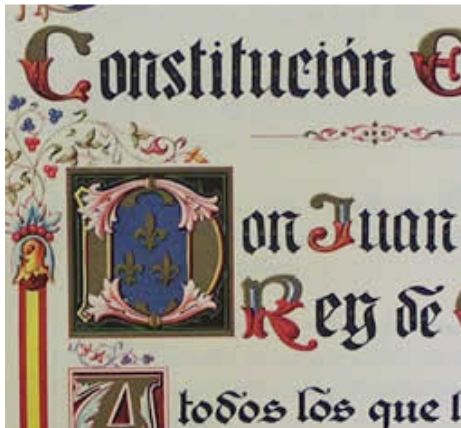 Constitución E
Don Juan
Rey de
A todos los que l